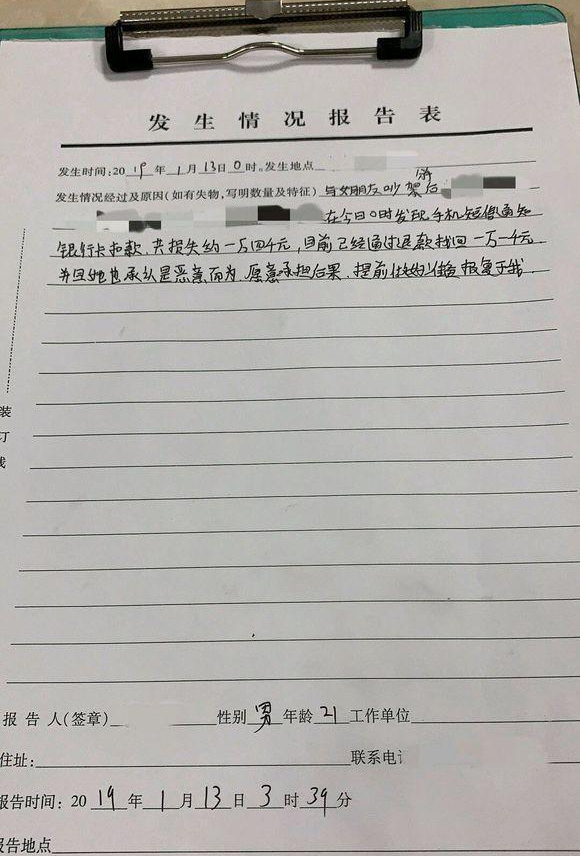 发生情况报告表
发生时间:2019年1月13日0时。发生地点
发生情况经过及原因(如有失物,写明数量及特征)与女朋友吵架后
在今日0时发现手机短信通知
银行卡扣款,共损失约一万四千元,目前已经通过退款找回一万一千元
并且她也承认是恶意而为,愿意承担后果,提前 报复于我.
装
订
线
报告人(签章) 性别男年龄21工作单位
住址: 联系电话
报告时间:2019年1月13日3时39分
报告地点